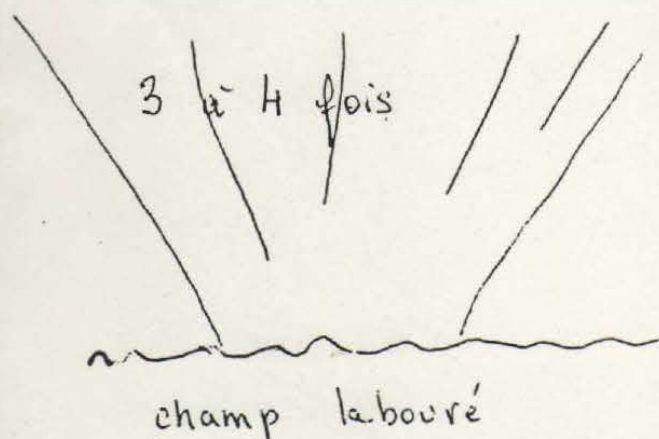 3 à 4 fois
champ labouré